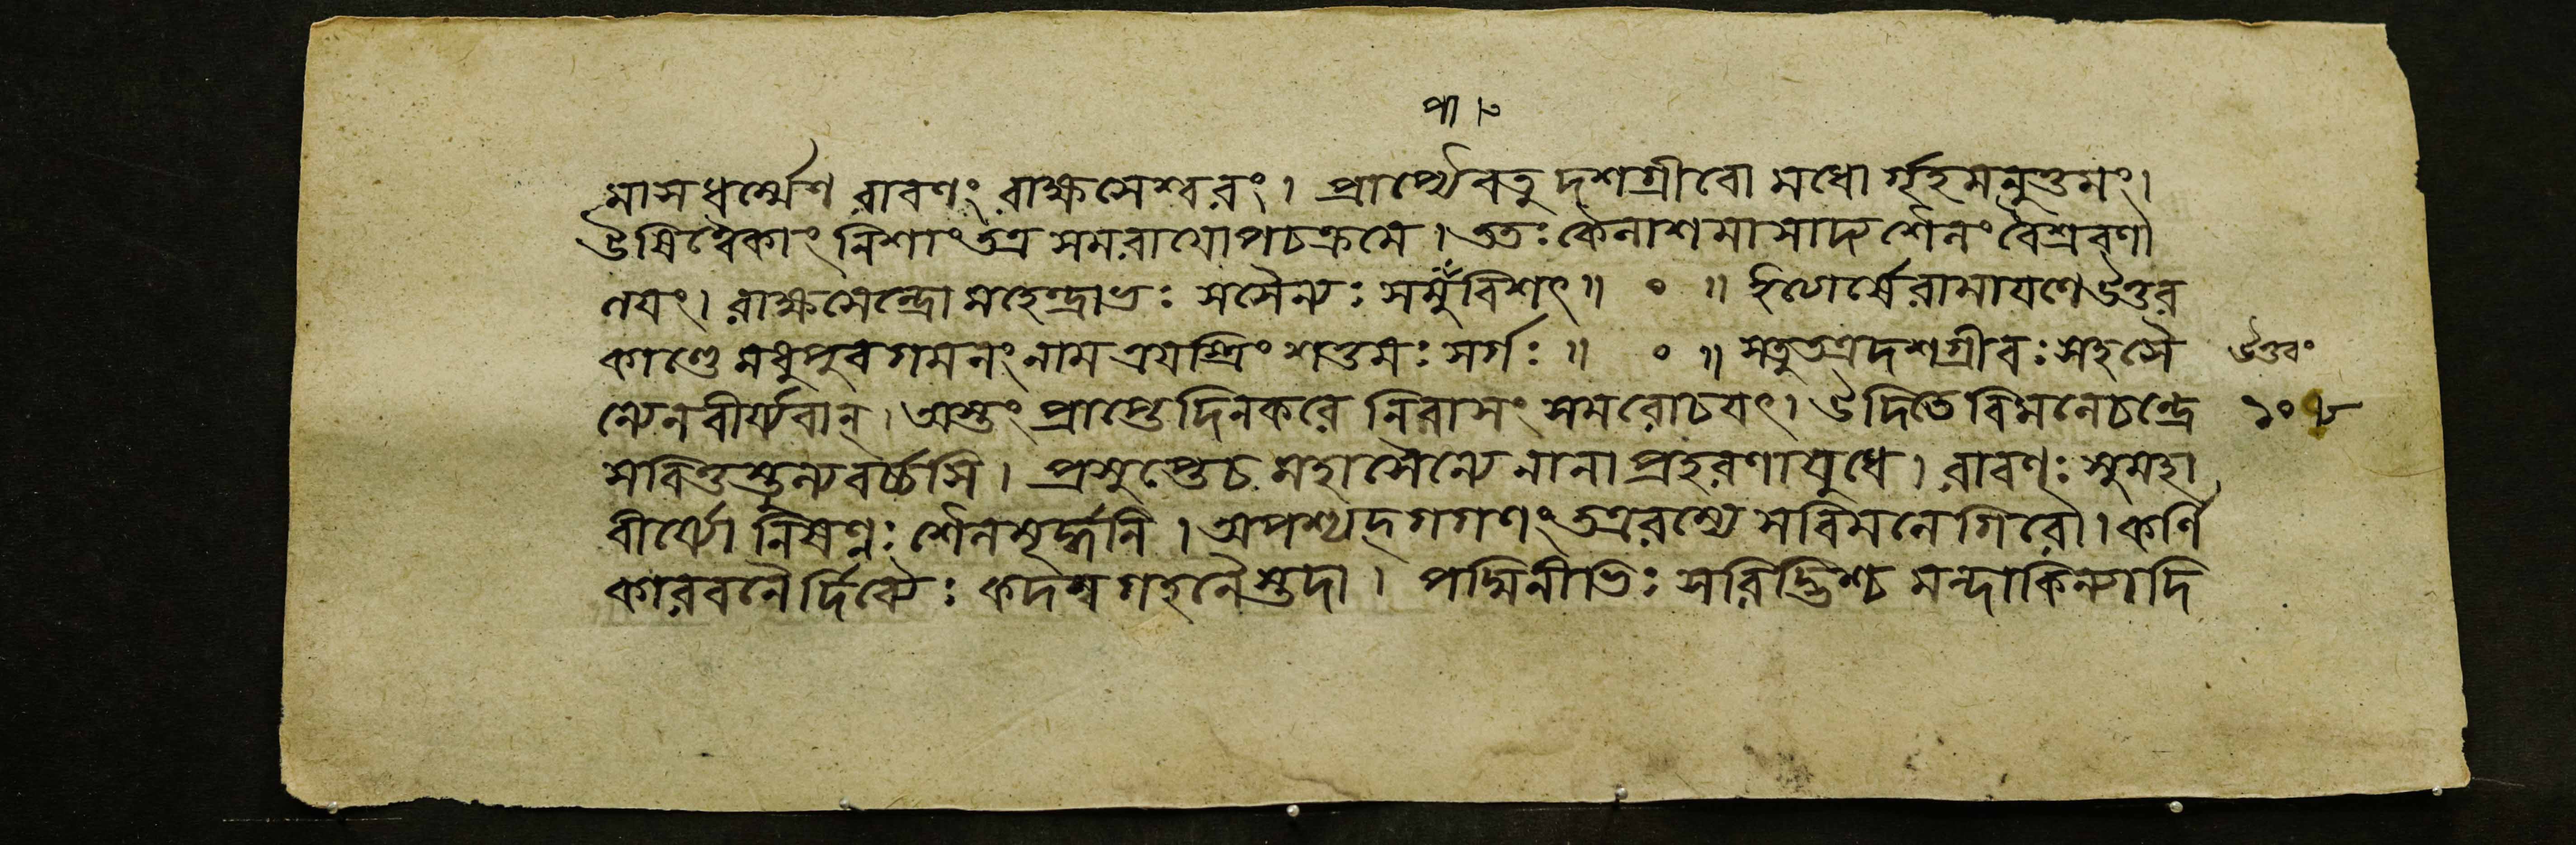 পা ৮
মাস ধর্ম্মেণ রাবণং রাক্ষসেশ্বরং। প্রাপ্যেবতু দশগ্রীবো মধোর্গৃহমনুত্তমং।
উষিত্বৈকাং নিশাং তত্র সমরাযোপচক্রমে। ততঃ কৈলাশমাসাদ্য শৈলং বৈশ্রবণা
লযং। রাক্ষসেন্দ্রো মহেন্দ্রাভঃ সসৈন্যঃ সমুঁবিশৎ॥ ০ ॥ ইত্যার্ষে রামাযণে উত্তর
কাণ্ডে মধুপুরগমনং নাম ত্রযস্ত্রিংশত্তমঃ সর্গঃ॥ ০ ॥ সতু তত্র দশগ্রীবঃ সহসৈ
উত্তরং
ন্যেন বীর্য্যবান্। অস্তং প্রাপ্তে দিনকরে নিবাসং সমরোচযৎ। উদিতে বিমলে চন্দ্রে
১০৮
সবিতুস্তুল্যবর্চ্চসি। প্রসুপ্তে চ মহাসৈন্যে নানাপ্রহরণাযুধে। রাবণঃ সুমহা
বীর্য্যো নিষণ্নঃ শৈলমূর্দ্ধনি। অপশ্যদ্ গগণং তত্র রম্যে সবিমলে গিরৌ। কর্ণি
কারবনৈর্দিব্যৈঃ কদম্বগহনৈস্তদা। পদ্মিনীভিঃ সরিদ্ভিশ্চ মন্দাকিন্যাদি